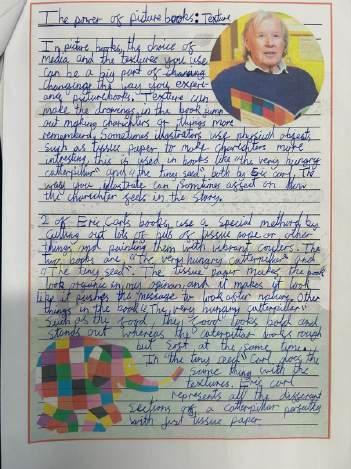 The power of picture books: Texture
In picture books, the choice of
media and the textures you use
can be a big part of
changeing the way you experi-
ance picturebooks. Texture can
make the drawings in the book jump
out making charichters or things more
remembered. Sometimes illustrators use physical objects
such as tissue paper to make charichters more
intresting this is used in books like "the very hungry
catterpillar" and "the tiny seed" both by Eric carl. The
way you illustrate can sometimes affect on how
the charichter feels in the story.
2 of Eric Carls books use a special method by
cutting out lots of bits of tissue paper or other
things and painting them with vibrant coulers. The
two books are "The very hungry catterpillar" and
"The tiny seed". The tissue paper makes the
look organic in my opinan and it makes it look
like it pushes the message to look after nature. Other
things in the book "The very hungry catterpillar"
such as the food, they food looks bold and
stands out whereas the catterpillar looks rough
but soft at the same time.
In "the tiny seed" Carl does the
same thing with the
textures. Eric carl
represents all the different
sections of a catterpillar perfectly
with just tissue paper